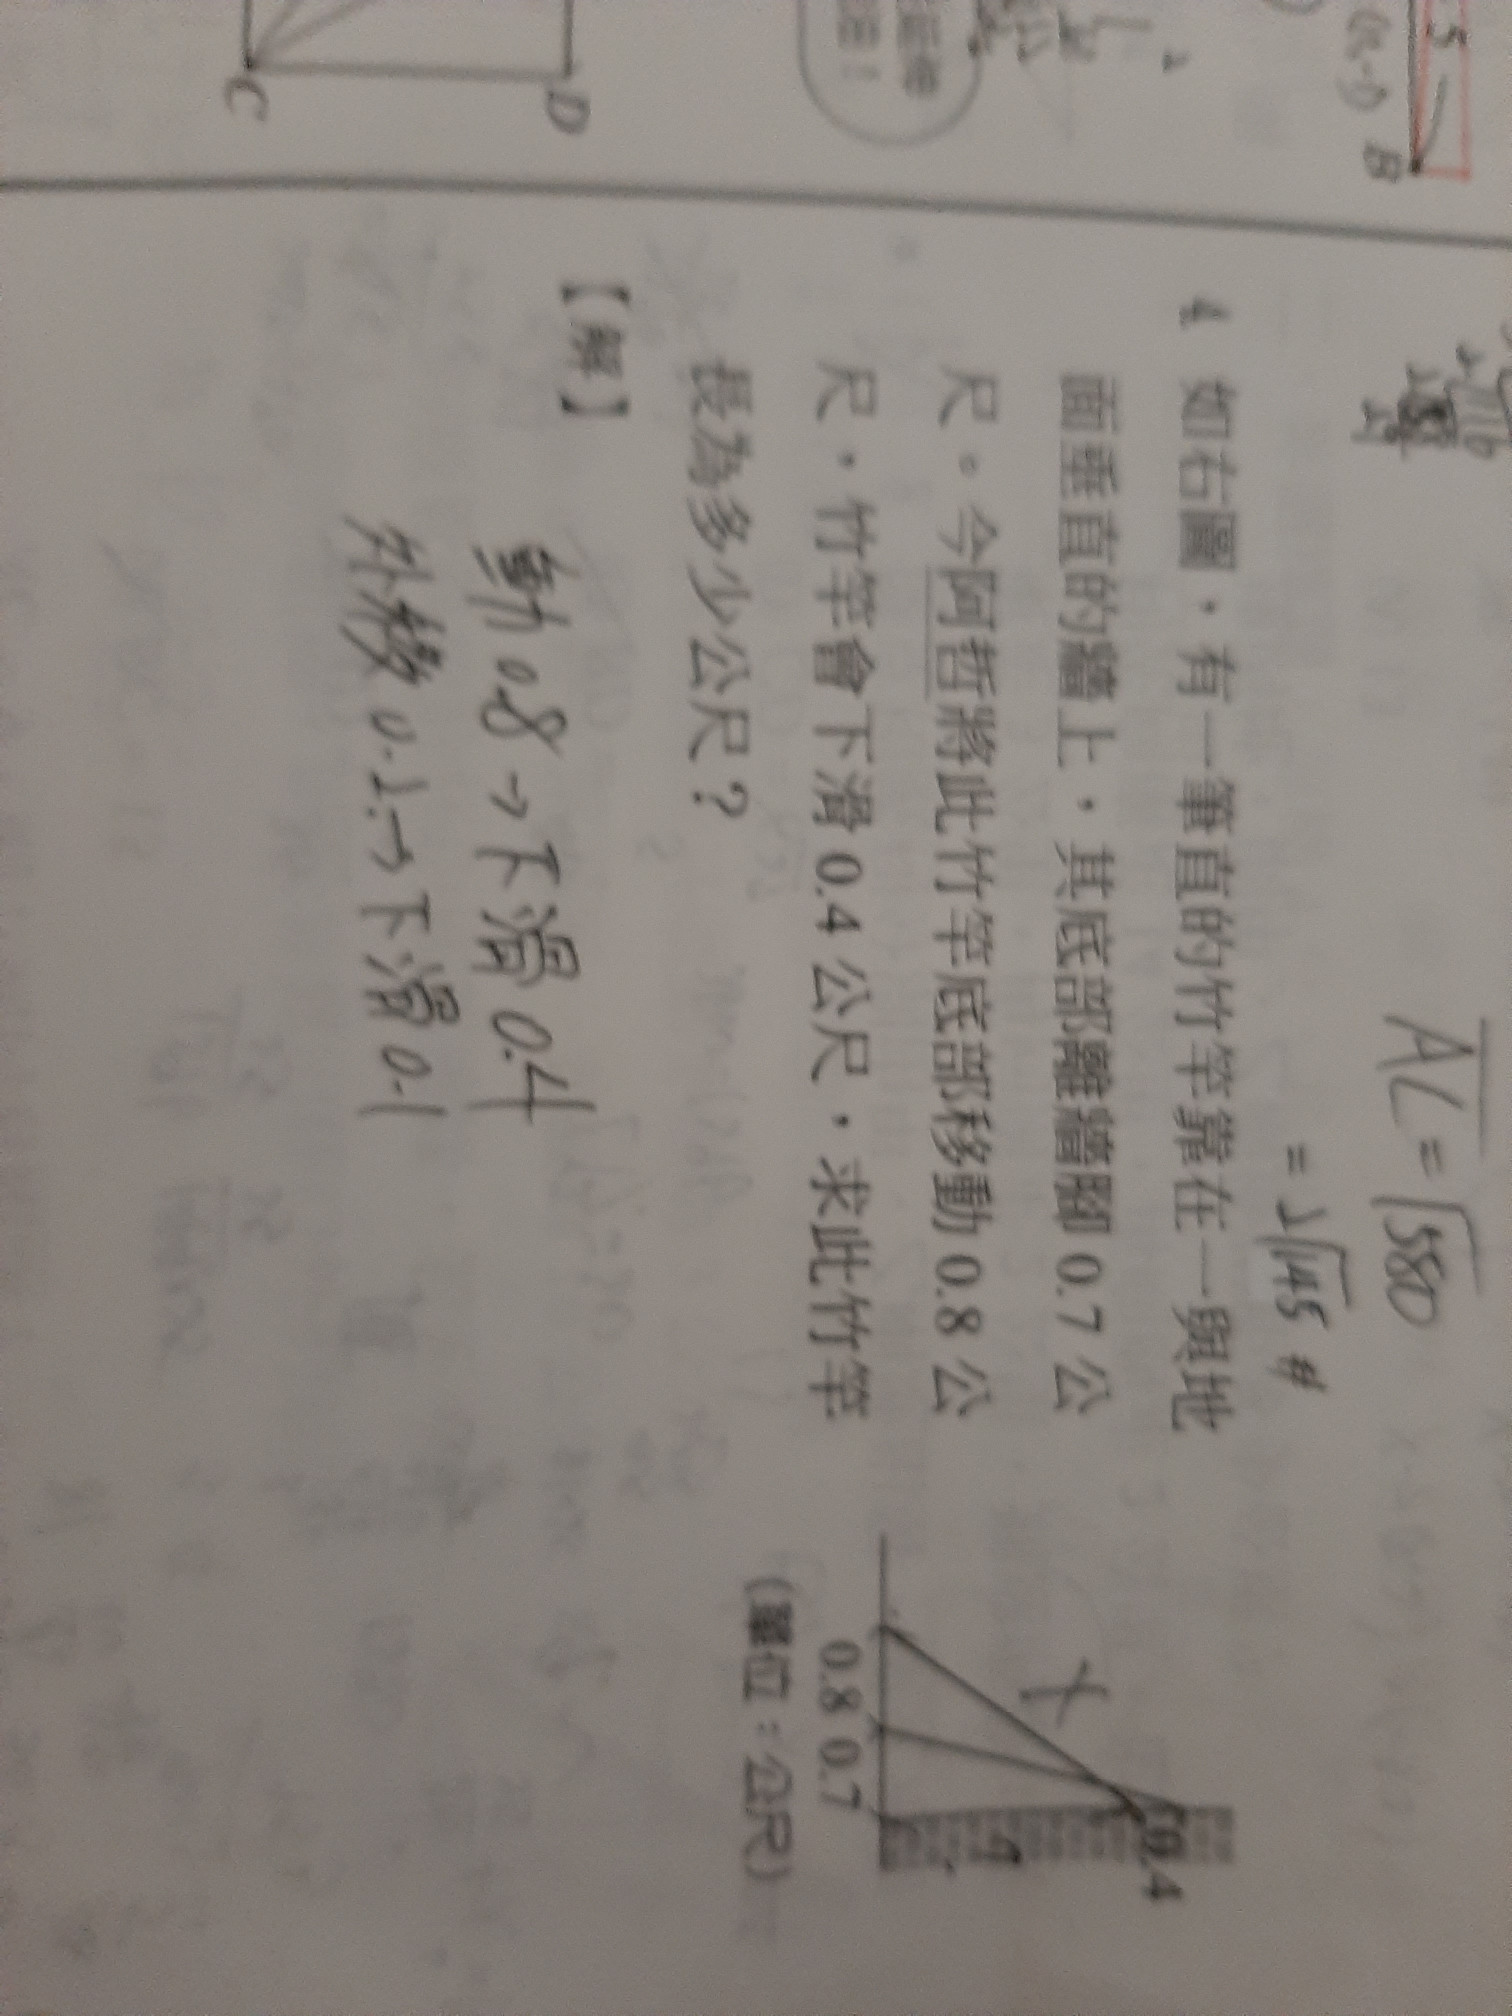 C
D
5
B
AC = √580
= 2√145 #
4. 如右圖，有一筆直的竹竿靠在一與地
面垂直的牆上，其底部離牆腳 0.7 公
尺。今阿哲將此竹竿底部移動 0.8 公
尺，竹竿會下滑 0.4 公尺，求此竹竿
長為多少公尺？
0.4
0.8 0.7
(單位：公尺)
【解】
動 0.8 → 下滑 0.4
外移 0.2 → 下滑 0.1